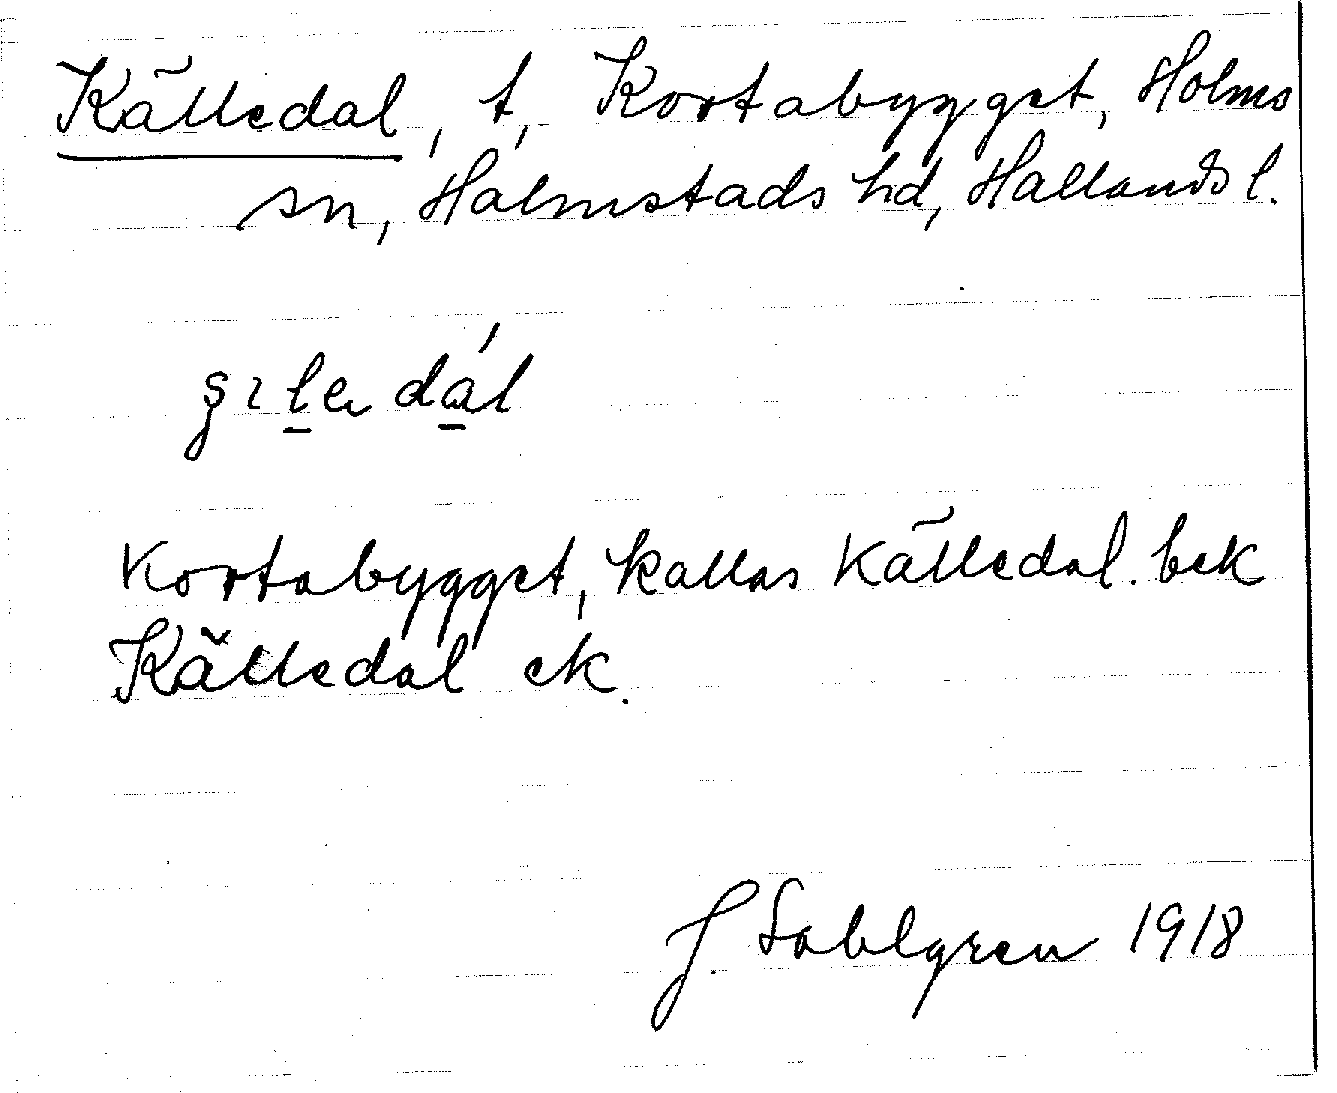 Källedal, t, Kortabygget, Holms
sn, Halmstads hd, Hallands l.
Kortabygget, kallas Källedal. bek
Källedal ek.
J. Sahlgren 1918